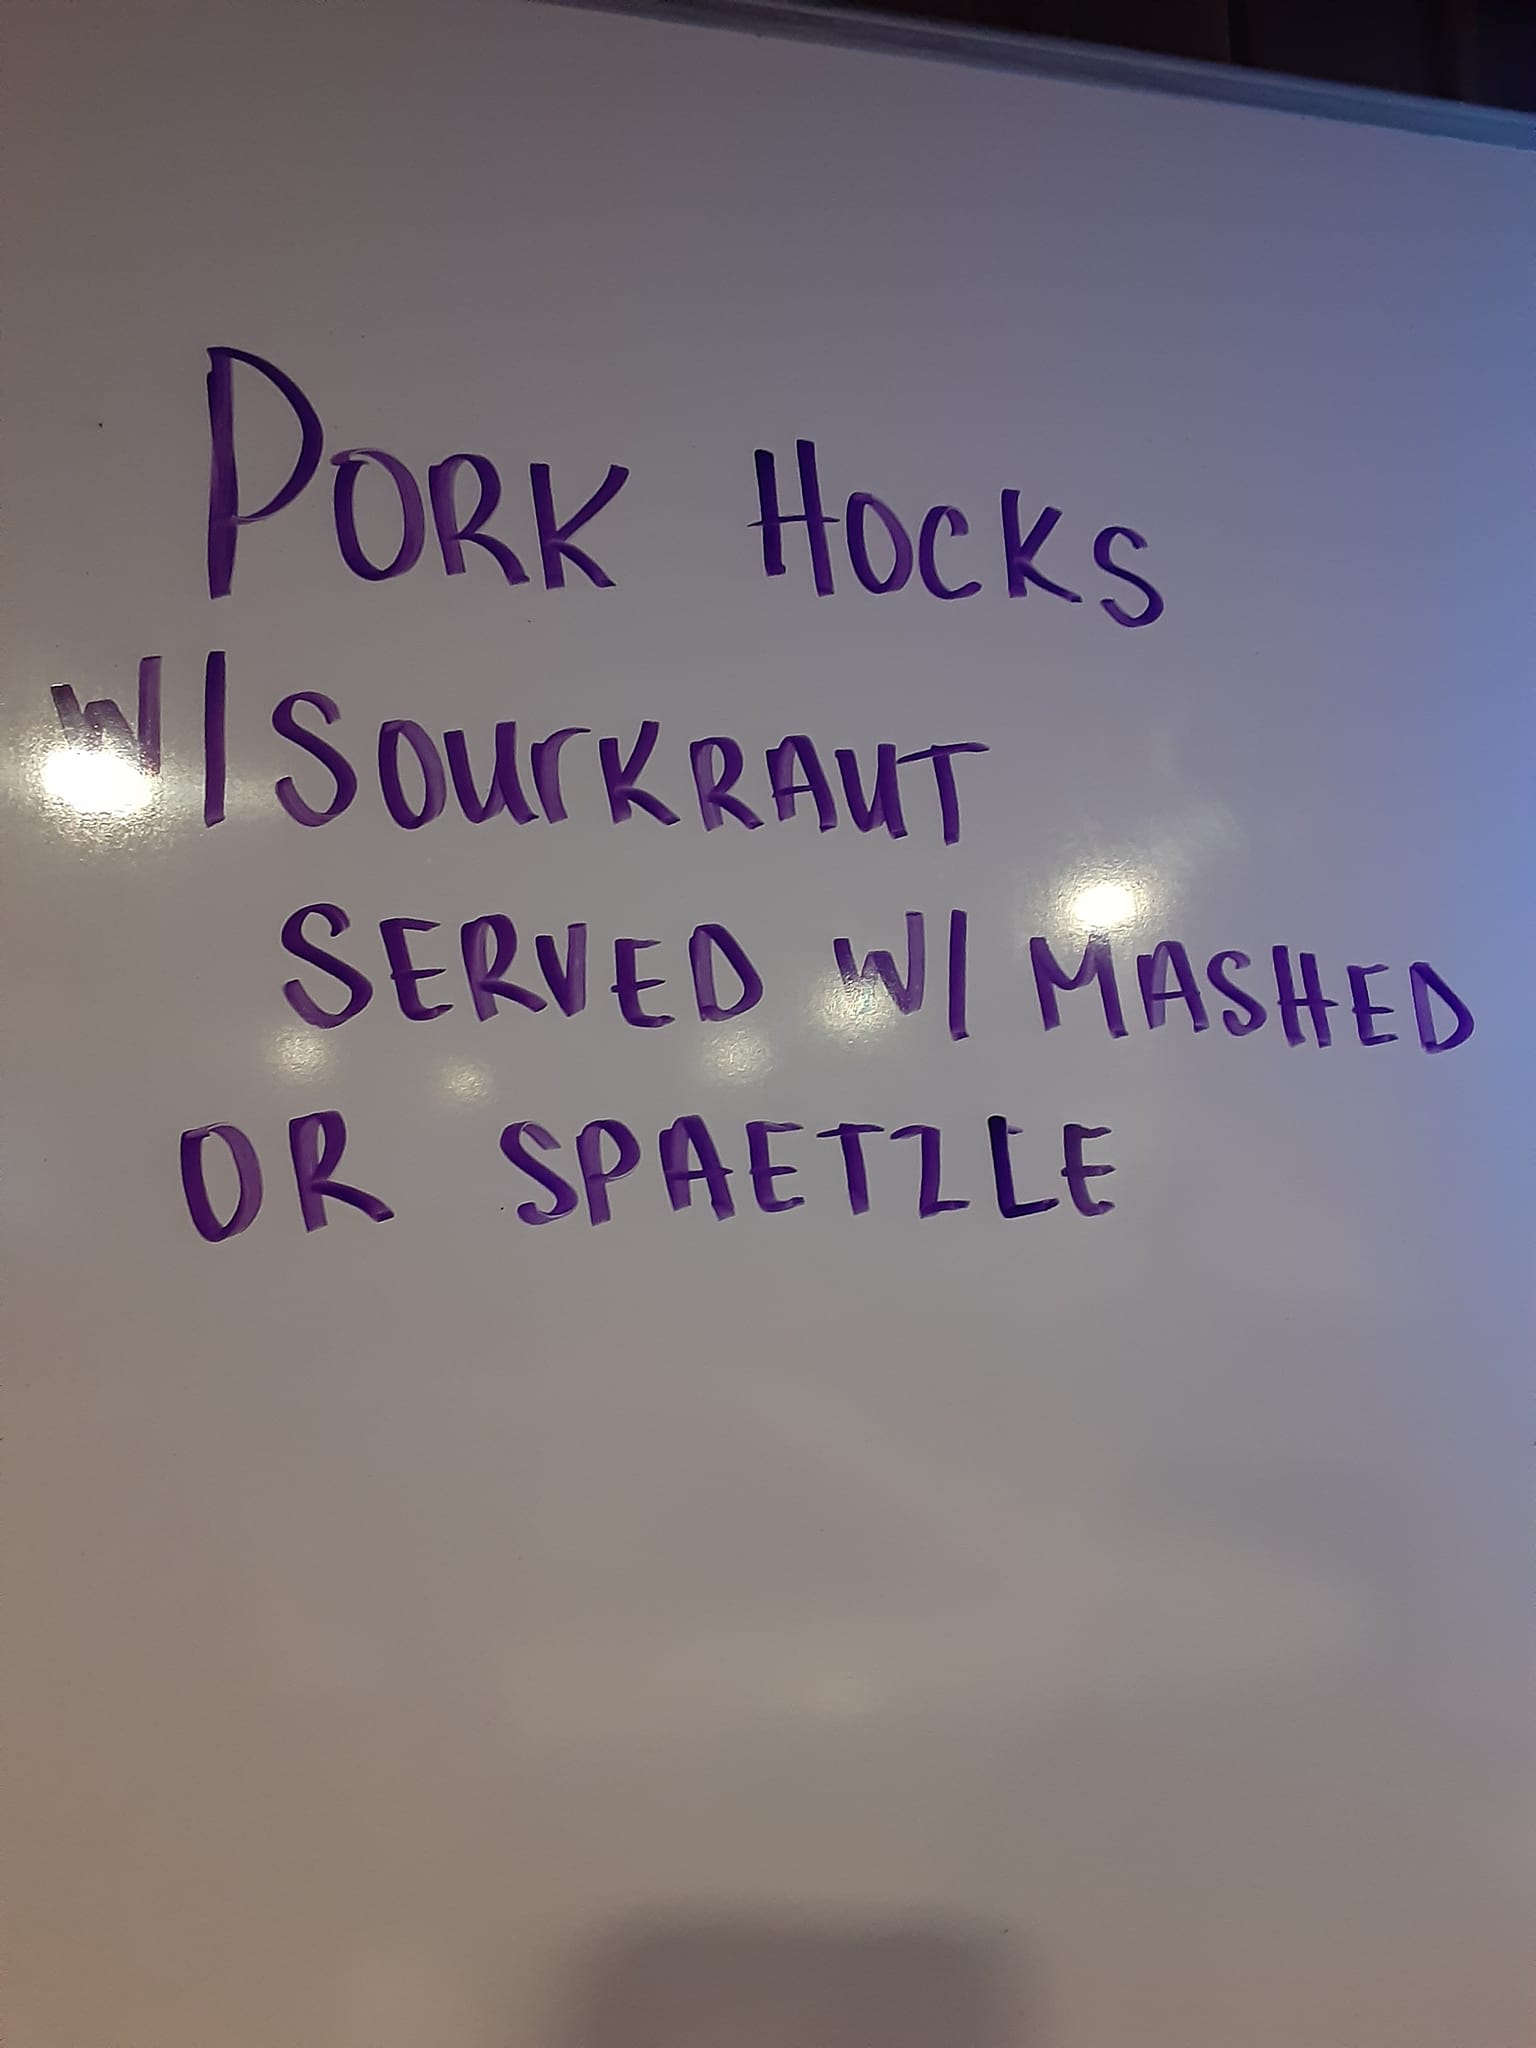 PORK HOCKS
W/SOURKRAUT
SERVED W/ MASHED
OR SPAETZLE